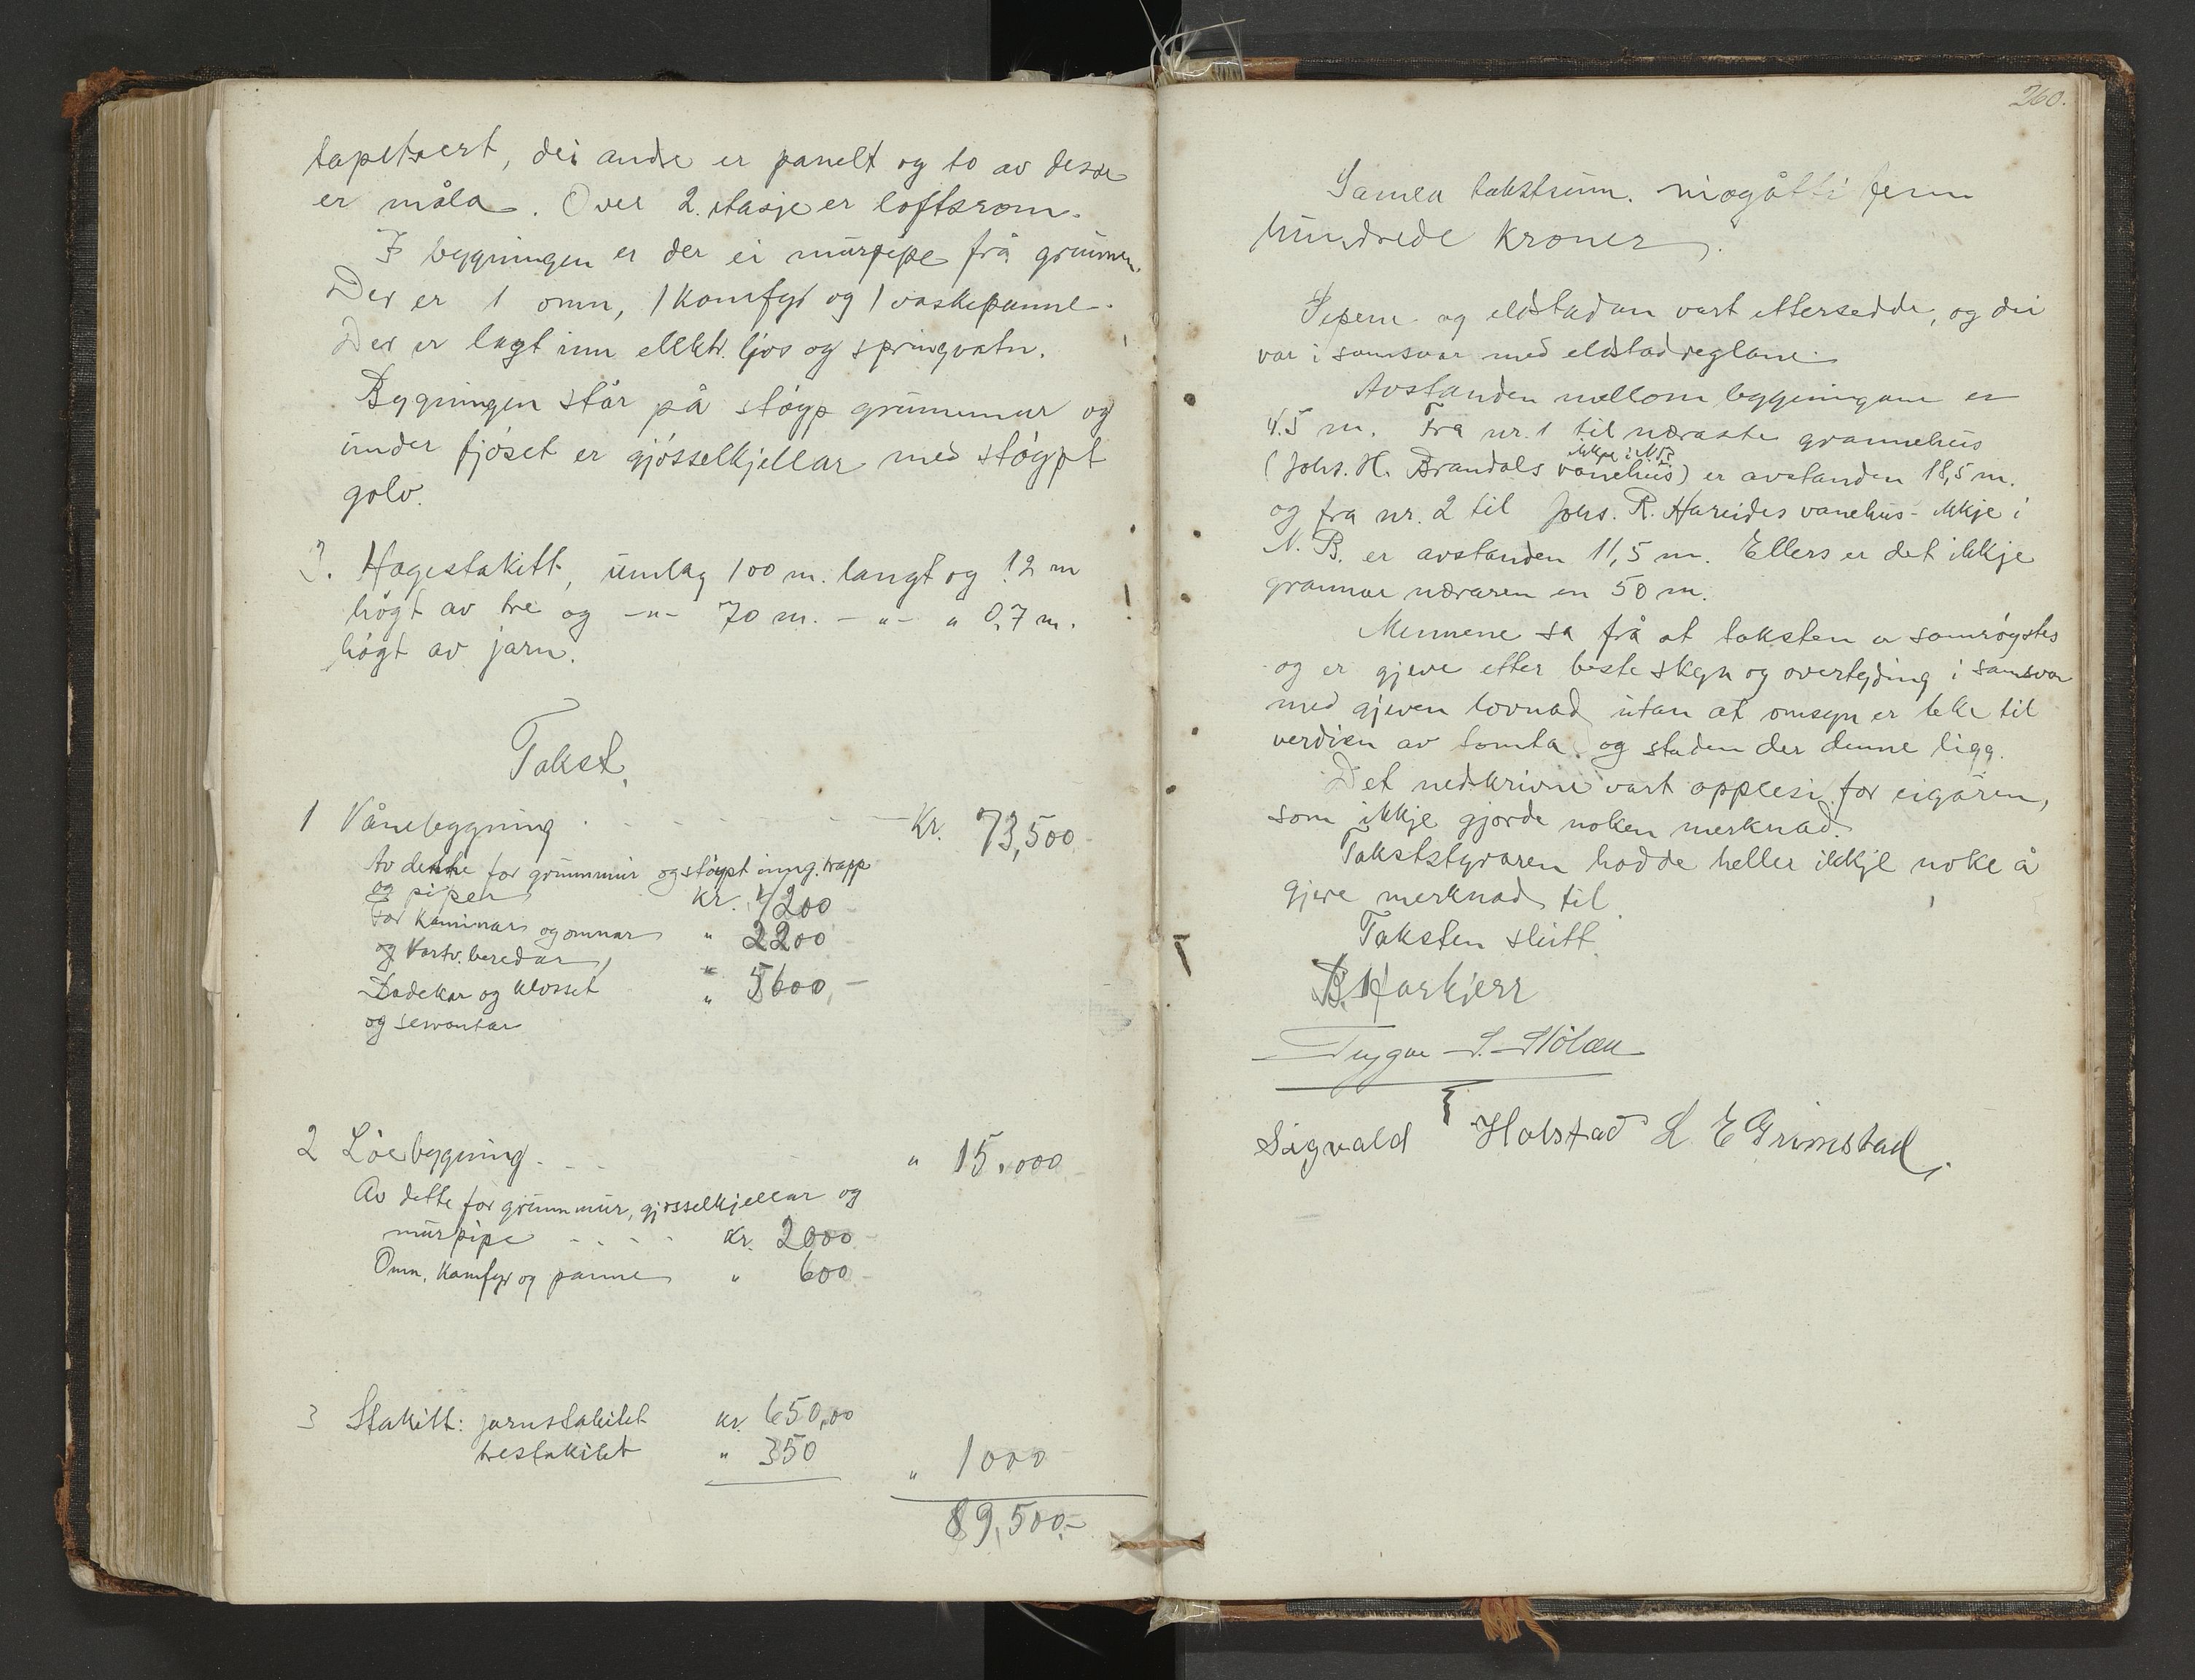 tapetsert, dei andre er panelt og to av desse
er måla. Over 2. etasje er loftsrom.
I bygningen er der ei murpipe frå grunnen.
Der er 1 omn, 1 komfyr og 1 vaskepanne.
Der er lagt inn elektr. ljos og springvatn.
Bygningen står på støyp grunnmur og
under fjøset er gjøsselkjellar med støypt
golv.
3. Hagestakitt, umlag 100 m. langt og 1.2 m
høgt av tre og -"- 70 m. -"- " 0,7 m.
høgt av jarn.
Takst.
1 Vånebygning Kr. 73,500
Av dette for grunnmur og støypt inng. trapp
og piper Kr. 4200
For kaminar og omnar " 2200
og Vartv. beredar, "
Badekar og klosset " 5600,-
og servantar
2 Løebygning " 15.000
Av dette for grunnmur, gjøsselkjellar og
murpipe Kr. 2000
Omn, Komfyr og panne " 600
3 Stakitt: jarnstakitet kr. 650,00
trestakitet " 350
" 1000
89,500,-
260.
Samla takstsum. niogåtti fem
hundrede kroner.
Pipene og eldstadan vart ettersedde, og dei
var i samsvar med eldstadreglane.
Avstanden mellom bygningane er
4.5 m. Fra nr. 1 til næraste grannehus
ikkje i N.B.
(Johs. H. Brandals vanehus) er avstanden 18,5 m.
og fra nr. 2 til Johs. R. Hareides vanehus - ikkje i
N. B. er avstanden 11,5 m. Ellers er det ikkje
grannar næraren en 50 m.
Mennene sa frå at taksten er samrøystes
og er gjeve etter beste skyn og overtyding i samsvar
med gjeven lovnad utan at omsyn er teke til
verdien av tomta og staden der denne ligg.
Det nedskrivne vart opplesi for eigaren,
som ikkje gjorde noken merknad.
Takststyraren hadde heller ikkje noke å
gjere merknad til.
Taksten slutt.
Trygve S.
Sigvald Holstad L E Grimstad,